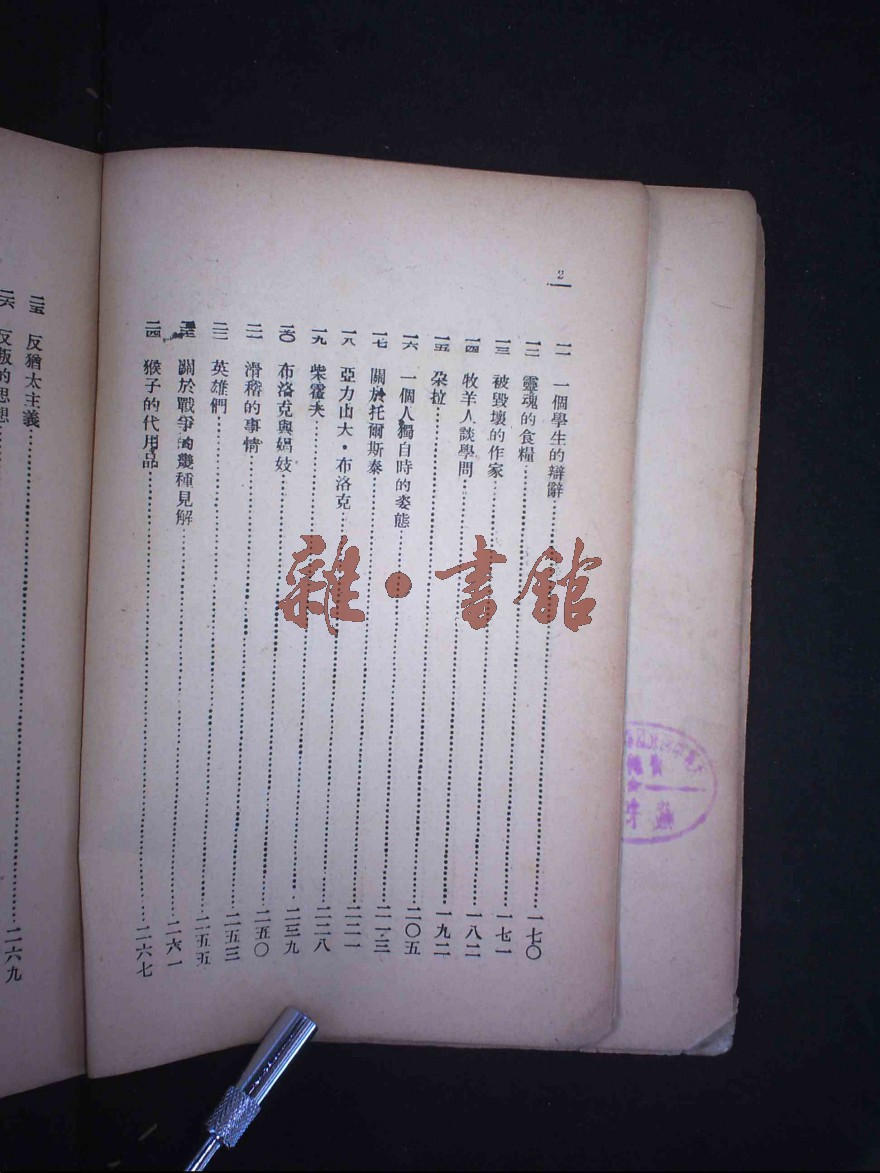 2
一一 一個學生的辯辭……一七〇
一二 靈魂的食糧……一七一
一三 被毀壞的作家……一八二
一四 牧羊人談學問……一九二
一五 朵拉……二〇五
一六 一個人獨自時的姿態……二一三
一七 關於托爾斯泰……二二一
一八 亞力山大·布洛克……二二八
一九 柴霍夫……二三九
二〇 布洛克與娼妓……二五〇
二一 滑稽的事情……二五三
二二 英雄們……二五五
二三 關於戰爭的幾種見解……二六一
二四 猴子的代用品……二六七
二五 反猶太主義……二六九
二六 反叛的思想
雜·書館